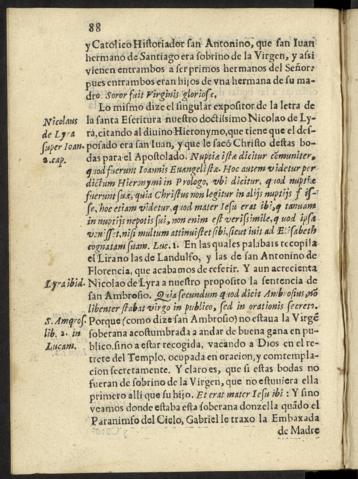 88
y Catolico Historiador san Antonino, que san Iuan
hermano de Santiago era sobrino de la Virgen, y assi
vienen entrambos a ser primos hermanos del Señor:
pues entrambos eran hijos de vna hermana de su ma-
dre. Soror fuit Virginis gloriosæ.
Lo mismo dize el singular expositor de la letra de
la santa Escritura nuestro doctissimo Nicolao de Ly-
ra, citando al diuino Hieronymo, que tiene que el des-
posado era san Iuan, y que le sacò Christo destas bo-
das para el Apostolado. Nuptiæ istæ dicitur cõmuniter,
quod fuerunt Ioannis Euangelistæ. Hoc autem videtur per
dictum Hieronymi in Prologo, vbi dicitur, quod nuptiæ
fuerunt suæ, quia Christus nou legitur in alijs nuptijs fuis-
se, hoc etiam videtur, quod mater Iesu erat ibi, & tanquam
in nuptijs nepotis sui, non enim est verisimile, quod ipsa
venisset, nisi multum attinuisset sibi, sicut iuit ad Elisabeth
cognatam suam. Luc. 1. En las quales palabras recopila
el Lirano las de Landulfo, y las de san Antonino de
Florencia, que acabamos de referir. Y aun acrecienta
Nicolao de Lyra a nuestro proposito la sentencia de
san Ambrosio. Quia secundum quod dicit Ambrosius, nõ
libenter stabat virgo in publico, sed in orationis secreto.
Porque (como dize san Ambrosio) no estaua la Virgẽ
soberana acostumbrada a andar de buena gana en pu-
blico, sino a estar recogida, vacando a Dios en el re-
trete del Templo, ocupada en oracion, y contempla-
cion secretamente. Y claro es, que si estas bodas no
fueran de sobrino de la Virgen, que no estuuiera ella
primero alli que su hijo. Et erat mater Iesu ibi: Y sino
veamos donde estaba esta soberana donzella quãdo el
Paraninfo del Cielo, Gabriel le traxo la Embaxada
de Madre
Nicolaus
de Lyra
super Ioan.
2. cap.
Lyra ibid.
S. Ambros.
lib. 2. in
Lucam.